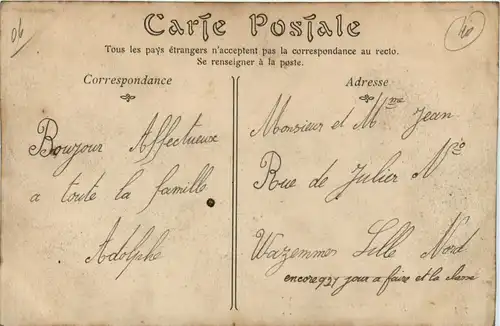 06
40
Carte Postale
Tous les pays étrangers n'acceptent pas la correspondance au recto.
Se renseigner à la poste.
Correspondance
Boujour Affectueux
a toute la famille
Adolphe
Adresse
Monsieur et Mme Jean
Rue de Julier No
Wazemmes Lille Nord
encore 927 jour a faire et la classe